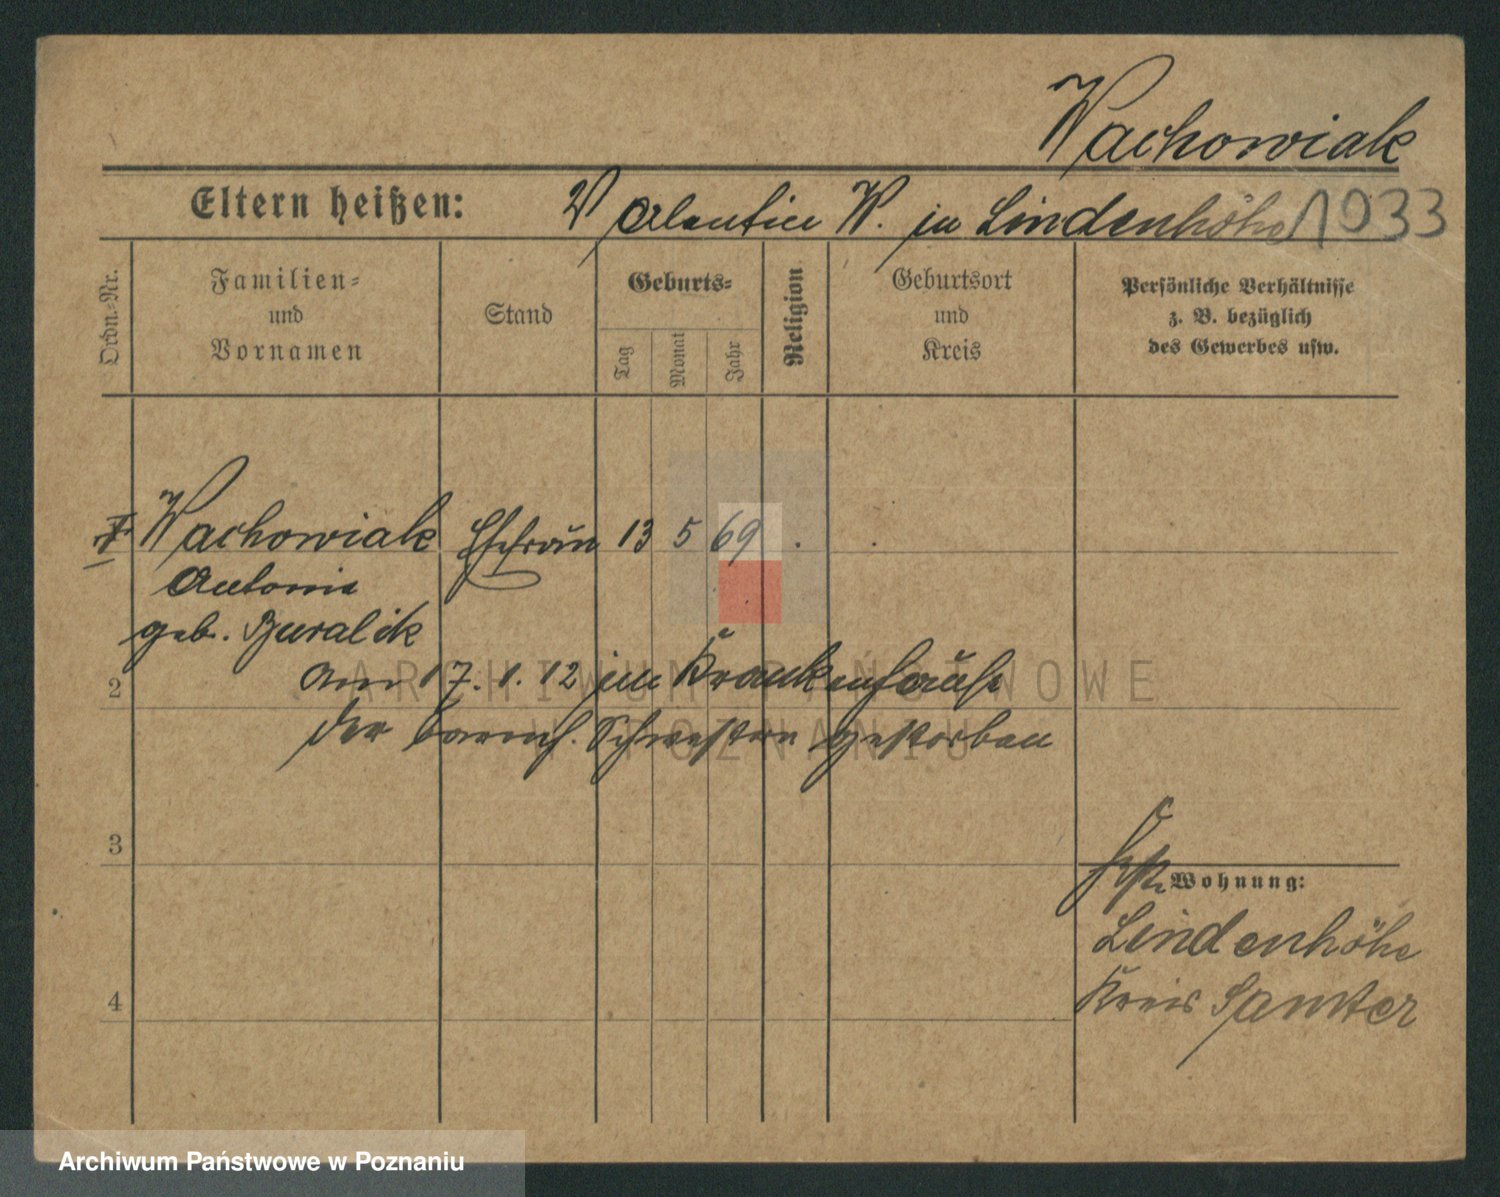 Wachowiak
Eltern heißen: Valentin W. in Lindenhöhe 1933
Ordn.-Nr.
Familien-
und
Vornamen
Stand
Geburts-
Tag
Monat
Jahr
Religion
Geburtsort
und
Kreis
Persönliche Verhältnisse
z. B. bezüglich
des Gewerbes usw.
Wachowiak Ehefrau 13 5 69
Antonie
geb. Guralcik
am 17. 1. 12 im Krankenhause
2
der barmh. Schwestern gestorben
3
Wohnung:
Lindenhöhe
4
Kreis Samter
ARCHIWUM PAŃSTWOWE
W POZNANIU
Archiwum Państwowe w Poznaniu